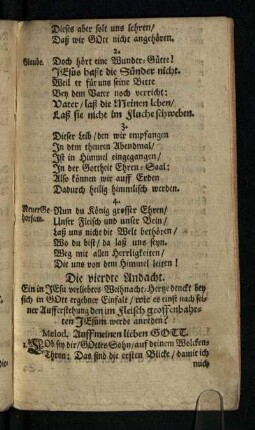 Dieses aber solt uns lehren/
Daß wir GOtt nicht angehören.
2.
Glaube. Doch hört eine Wunder-Gütte!
JEsus hast die Sünder nicht.
Weil er für uns seine Bitte
Bey dem Vater noch verricht:
Vater/ laß die Meinen leben/
Laß sie nicht im Fluche schweben.
3.
Dieser Leib/ den wir empfangen
In dem theuren Abendmal/
Ist in Himmel eingegangen/
In der Gottheit Ehren-Saal:
Also können wir auff Erden
Dadurch heilig himmlisch werden.
4.
Neuer Ge- Nun du König grosser Ehren/
horsam. Unser Fleisch und unser Bein/
Laß uns nicht die Welt bethören/
Wo du bist/ da laß uns seyn.
Weg mit allen Herrligkeiten/
Die uns von dem Himmel leiten!
Die vierdte Andacht.
Ein in JEsu verliebtes Weihnacht-Hertze denckt bey
sich in GOtt ergebner Einfalt/ wie es einst nach sei-
ner Aufferstehung den im Fleisch geoffenbahr-
ten JEsum werde anreden?
Melod. Auff meinen lieben GOTT.
1. Ob sey dir/ GOttes Sohn/ auf deinem Wolcken-
Thron: Das sind die ersten Blicke/ damit ich
mich